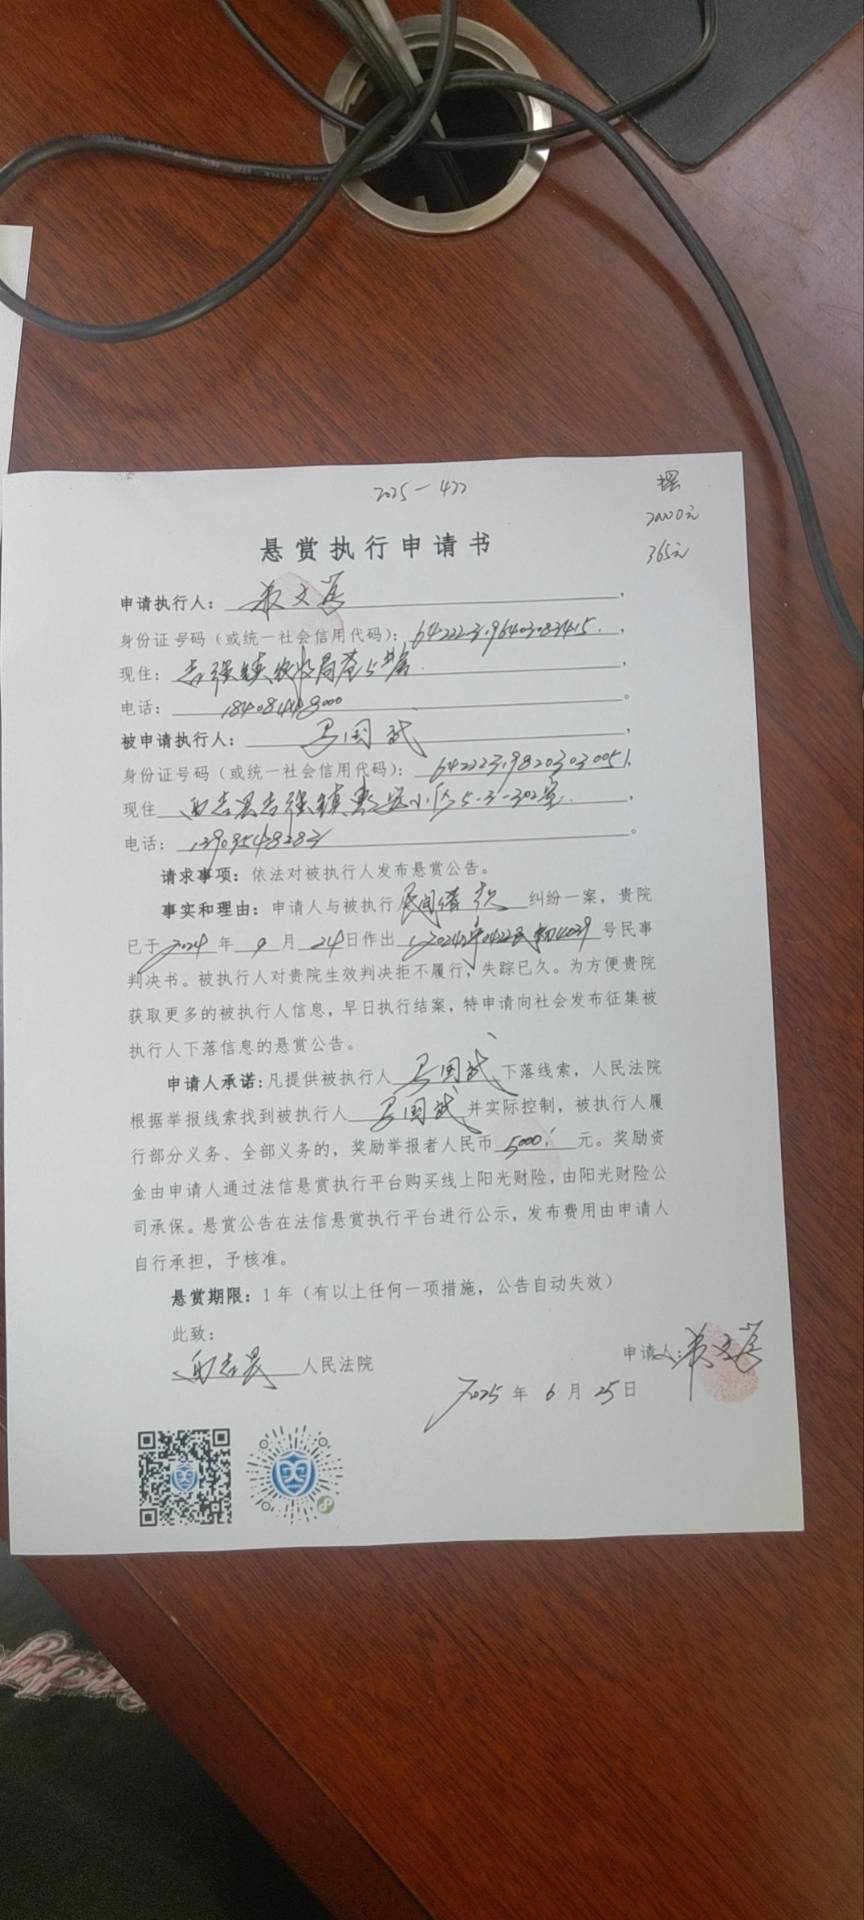 2025-422
2000元
365元
悬赏执行申请书
申请执行人：
身份证号码（或统一社会信用代码）：
现住：吉强镇
电话：
被申请执行人：马国武
身份证号码（或统一社会信用代码）：
现住 西吉县吉强镇 小区5-3-302室
电话：13909548283
请求事项：依法对被执行人发布悬赏公告。
事实和理由：申请人与被执行 民间借贷 纠纷一案，贵院
已于 2024 年 9 月 24 日作出 号民事
判决书。被执行人对贵院生效判决拒不履行，失踪已久。为方便贵院
获取更多的被执行人信息，早日执行结案，特申请向社会发布征集被
执行人下落信息的悬赏公告。
申请人承诺：凡提供被执行人 马国武 下落线索，人民法院
根据举报线索找到被执行人 马国武 并实际控制，被执行人履
行部分义务、全部义务的，奖励举报者人民币 5000 元。奖励资
金由申请人通过法信悬赏执行平台购买线上阳光财险，由阳光财险公
司承保。悬赏公告在法信悬赏执行平台进行公示，发布费用由申请人
自行承担，予核准。
悬赏期限：1年（有以上任何一项措施，公告自动失效）
此致：
西吉县 人民法院
申请人：
2025 年 6 月 25 日